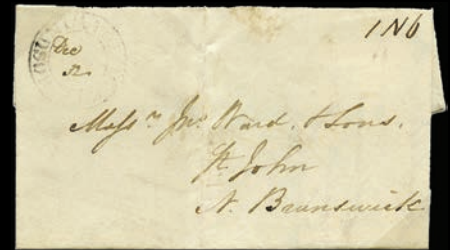 1N6
Dec
Messrs Jno Ward & Sons.
St John
N. Brunswick